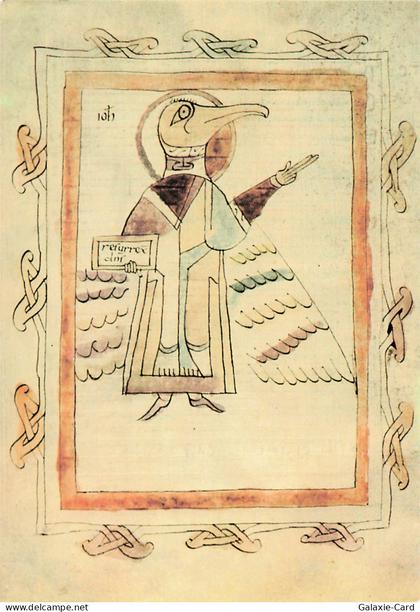 ioh
resurrex
www.delcampe.net
Galaxie-Card